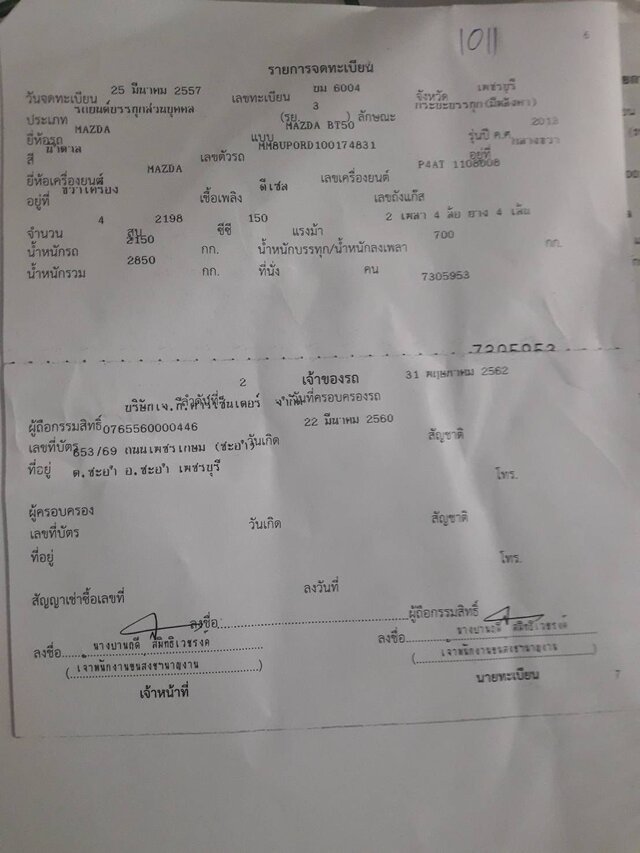 1011
6
รายการจดทะเบียน
วันจดทะเบียน 25 มีนาคม 2557 เลขทะเบียน ยม 6004 จังหวัด เพชรบุรี
ประเภท รถยนต์บรรทุกส่วนบุคคล (รย. 3 ) ลักษณะ กระบะบรรทุก(มีหลังคา)
ยี่ห้อรถ MAZDA แบบ MAZDA BT50 รุ่นปี ค.ศ. 2013
สี น้ำตาล เลขตัวรถ MM8UP0RD100174831 อยู่ที่ กลางขวา
ยี่ห้อเครื่องยนต์ MAZDA เลขเครื่องยนต์ P4AT 1108608
อยู่ที่ ขวาเครื่อง เชื้อเพลิง ดีเซล เลขถังแก๊ส
จำนวน 4 สูบ 2198 ซีซี 150 แรงม้า 2 เพลา 4 ล้อ ยาง 4 เส้น
น้ำหนักรถ 2150 กก. น้ำหนักบรรทุก/น้ำหนักลงเพลา 700 กก.
น้ำหนักรวม 2850 กก. ที่นั่ง คน 7305953
7305953
เจ้าของรถ
ลำดับที่ 2 วันที่ครอบครองรถ 31 พฤษภาคม 2562
ผู้ถือกรรมสิทธิ์ บริษัทเจ.ที.คาร์เซ็นเตอร์ จำกัด
เลขที่บัตร 0765560000446 วันเกิด 22 มีนาคม 2560 สัญชาติ
ที่อยู่ 853/69 ถนนเพชรเกษม (ชะอำ)
ต.ชะอำ อ.ชะอำ เพชรบุรี โทร.
ผู้ครอบครอง
เลขที่บัตร วันเกิด สัญชาติ
ที่อยู่ โทร.
สัญญาเช่าซื้อเลขที่ ลงวันที่
ลงชื่อ ผู้ถือกรรมสิทธิ์
ลงชื่อ ลงชื่อ
เจ้าหน้าที่ นายทะเบียน
7